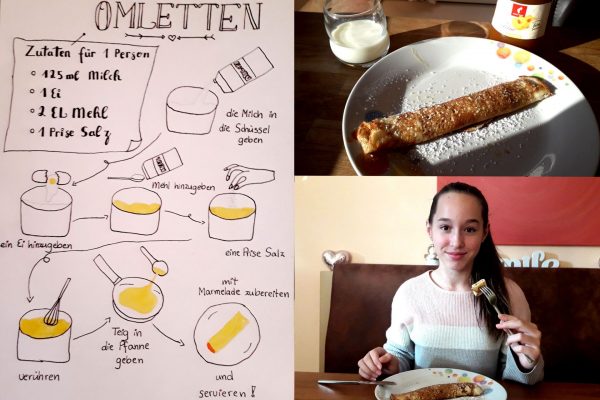 OMLETTEN
Zutaten für 1 Person
125 ml Milch
1 Ei
2 EL Mehl
1 Prise Salz
die Milch in
die Schüssel
geben
Mehl hinzugeben
ein Ei hinzugeben
eine Prise Salz
mit
Marmelade zubereiten
Teig in
die Pfanne
geben
verühren
und
servieren!